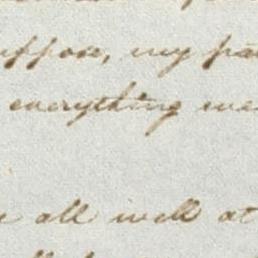 uppose, my pa
everything we
e all well at